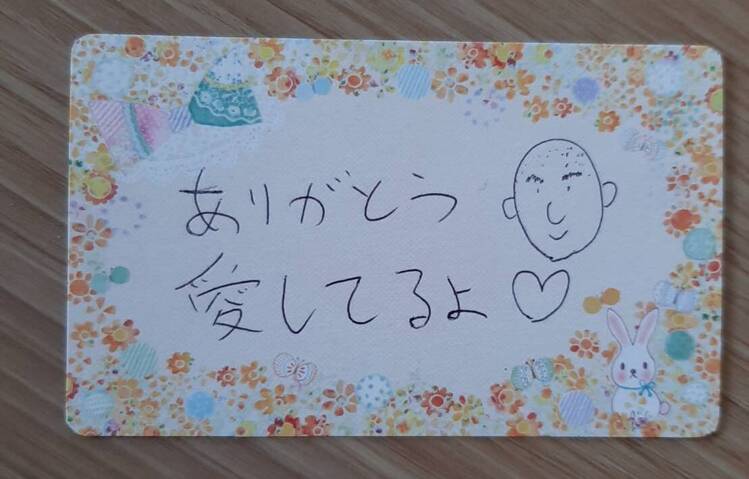 ありがとう
愛してるよ♡